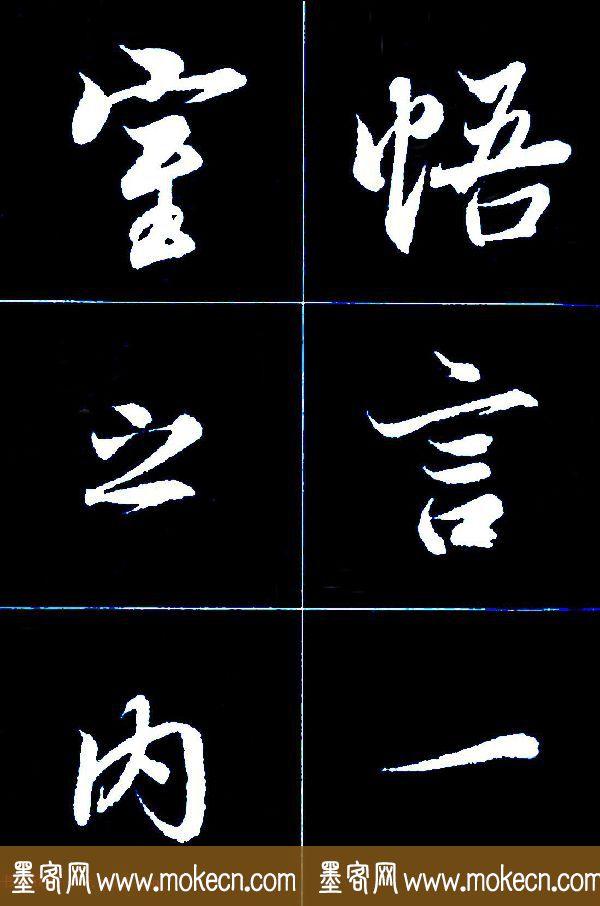 悟言一
室之内
墨客网 www.mokecn.com 墨客网 www.mokecn.com